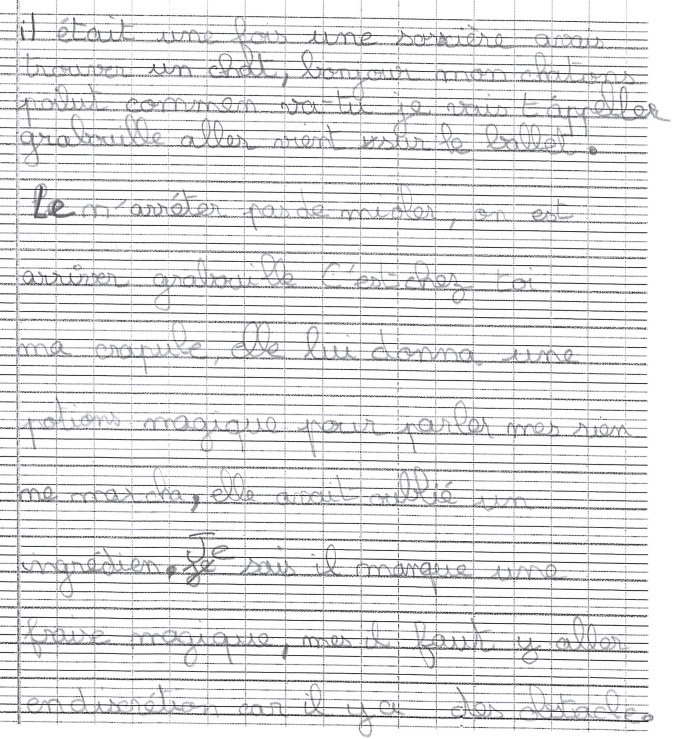 il était une fois une sorsière avais
trouver un chat, bonjour mon chatons
salut commen va-tu je vais t'appeller
grabouille aller vient sur le ballet.
Le n'arrêter pas de mioler, on est
arriver grabouille C'est chez toi
ma crapule, elle lui donna une
potions magique pour parler mes rien
ne marcha, elle avait oublié un
ingrédien. Je sais il manque une
fraise magique, mes il faut y aller
en discrétion car il y a des obstacles